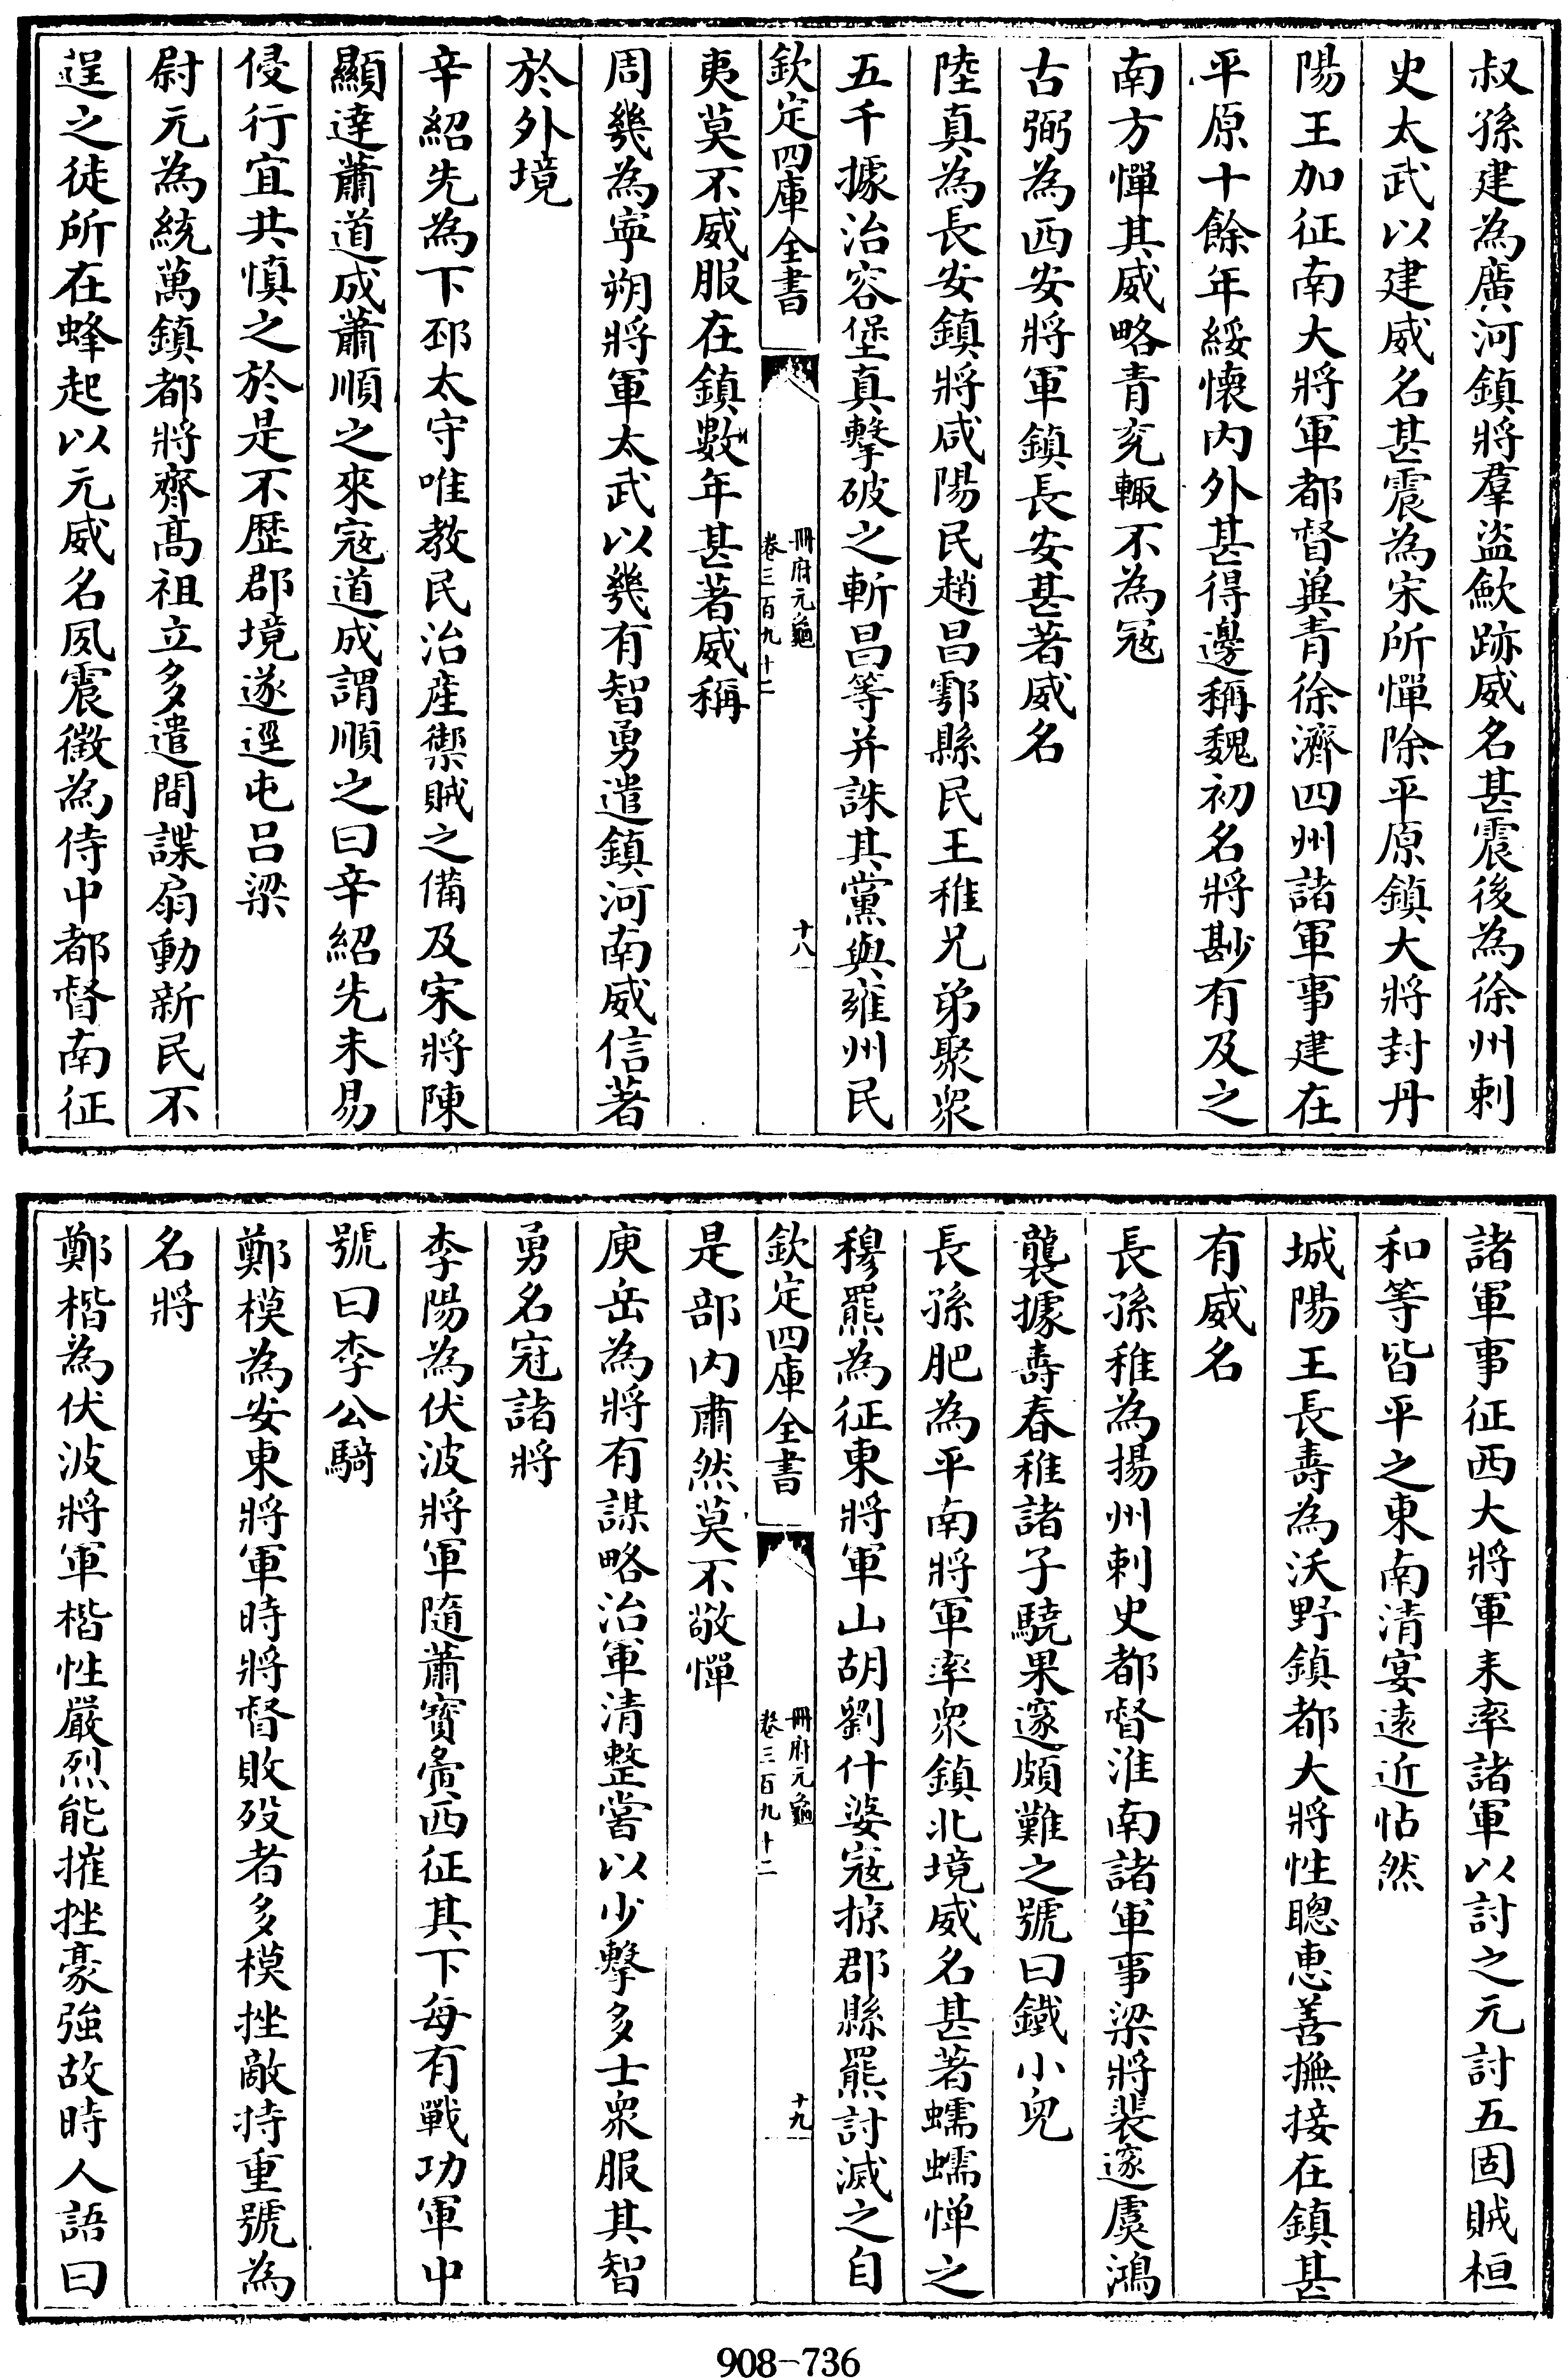 叔孫建為廣河鎮將羣盜歛跡威名甚震後為徐州刺
史太武以建威名甚震為宋所憚除平原鎮大將封丹
陽王加征南大將軍都督兾青徐濟四州諸軍事建在
平原十餘年綏懷内外甚得邊稱魏初名將尠有及之
南方憚其威略青兖輙不為冦
古弼為西安將軍鎮長安甚著威名
陸真為長安鎮將咸陽民趙昌鄠縣民王稚兄弟聚衆
五千據治容堡真擊破之斬昌等并誅其黨與雍州民
欽定四庫全書
冊府元龜
卷三百九十二
十八
夷莫不威服在鎮數年甚著威稱
周幾為寧朔將軍太武以幾有智勇遣鎮河南威信著
於外境
辛紹先為下邳太守唯教民治産禦賊之備及宋將陳
顯達蕭道成蕭順之來宼道成謂順之曰辛紹先未易
侵行宜共慎之於是不歴郡境遂逕屯吕梁
尉元為統萬鎮都將齊髙祖立多遣間諜扇動新民不
逞之徒所在蜂起以元威名夙震徵為侍中都督南征
諸軍事征西大將軍来率諸軍以討之元討五固賊桓
和等皆平之東南清宴逺近怗然
城陽王長壽為沃野鎮都大將性聰恵善撫接在鎮甚
有威名
長孫稚為揚州刺史都督淮南諸軍事梁將裴邃虞鴻
襲據壽春稚諸子驍果邃頗難之號曰鐵小兒
長孫肥為平南將軍率衆鎮北境威名甚著蠕蠕憚之
穆羆為征東將軍山胡劉什婆宼掠郡縣羆討滅之自
欽定四庫全書
冊府元龜
卷三百九十二
十九
是部内肅然莫不敬憚
庾岳為將有謀略治軍清整嘗以少擊多士衆服其智
勇名冠諸將
李陽為伏波將軍隨蕭寳夤西征其下每有戰功軍中
號曰李公騎
鄭模為安東將軍時將督敗殁者多模挫敵持重號為
名將
鄭楷為伏波將軍楷性嚴烈能摧挫豪強故時人語曰
908-736